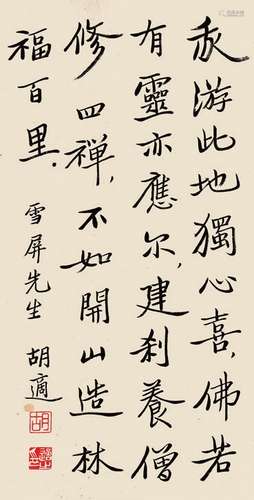 我游此地獨心喜,佛若
有靈亦應尔,建刹養僧
修四禅,不如開山造林
福百里.
雪屏先生
胡適
胡